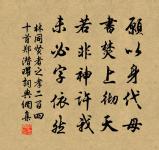 願以身代母
書焚上徹天
若非神許我
未必字依然
林同賢者之孝二百四
十首鄭潛曜詞典網集